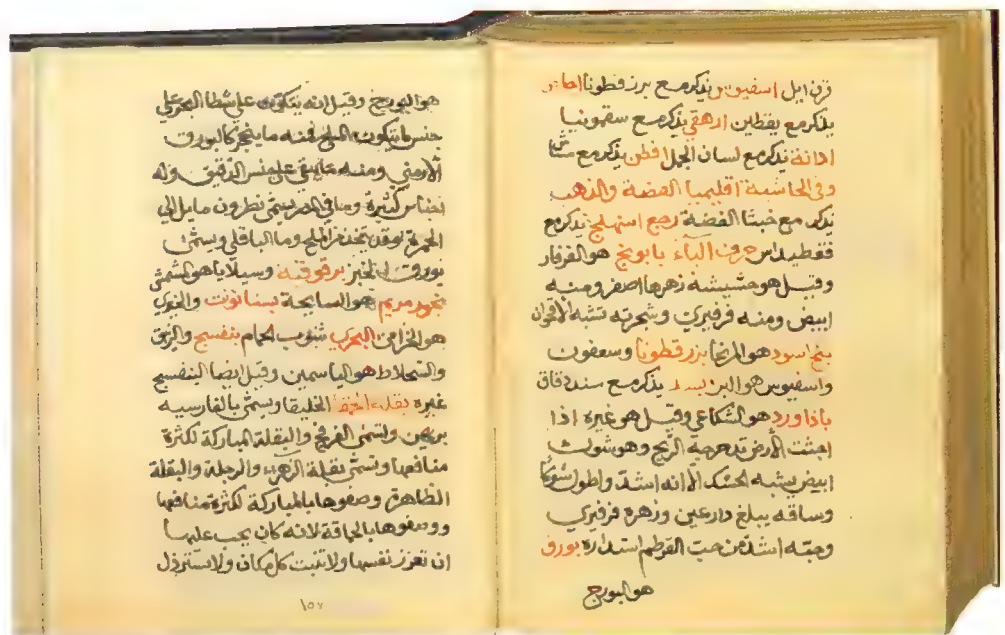 قرن ايل اسفيوس يذكر مع بزر قطونا
يذكر مع يقطين ارهقي يذكر مع سقمونيا
اذانة يذكر مع لسان الجمل افطن يذكر مع
وفي الحاشية اقليميا الفضة والذهب
يذكر مع خبث الفضة رجع يذكر مع
حرف الباء بابونج هو القرفار
وقيل هو حشيشة زهرها اصفر ومنه
ابيض ومنه فرفيري وشجرته تشبه الاقحوان
بنج اسود هو المرنحا بزر قطونا
واسفيوس هو البزر بسد يذكر مع
باذاورد هو الشكاعى وقيل هو غيره اذا
الارض تدحرجه الريح وهو شوك
ابيض يشبه الحسك الا انه اشد واطول شوكا
وساقه يبلغ ذارعين وزهره فرفيري
وحبه اشد من حب القرطم استداره بورق
هو البورج
هو البورج وقيل انه يتكون على شطا البحر على
جنس ما يتكون الملح فمنه ما ينحجر كالبورق
الارمني ومنه ما يبقى على جنس الدقيق وله
اجناس كثيرة وما في المصر يسمى نطرون مايل الى
الحمرة وقد يتخذ من الملح وما الباقلي ويسمى
بورق الخبز برقوقية هو المشمش
بخور مريم هو السابحة بستانوت
هو الخزامى البحري الحمام بنفسج
هو الياسمين وقيل ايضا البنفسج
غيره بقلة الحمقا ويسمى بالفارسيه
بربهن وتسمى الفرفح والبقلة المباركة لكثرة
منافعها وتسمى بقلة الزهراء والرجلة والبقلة
الظاهرة وصفوها بالمباركة لكثرة منافعها
ووصفوها بالحماقة لانه كان يجب عليها
ان تعزز نفسها ولا تنبت كل مكان ولا تسترذل
١٥٧